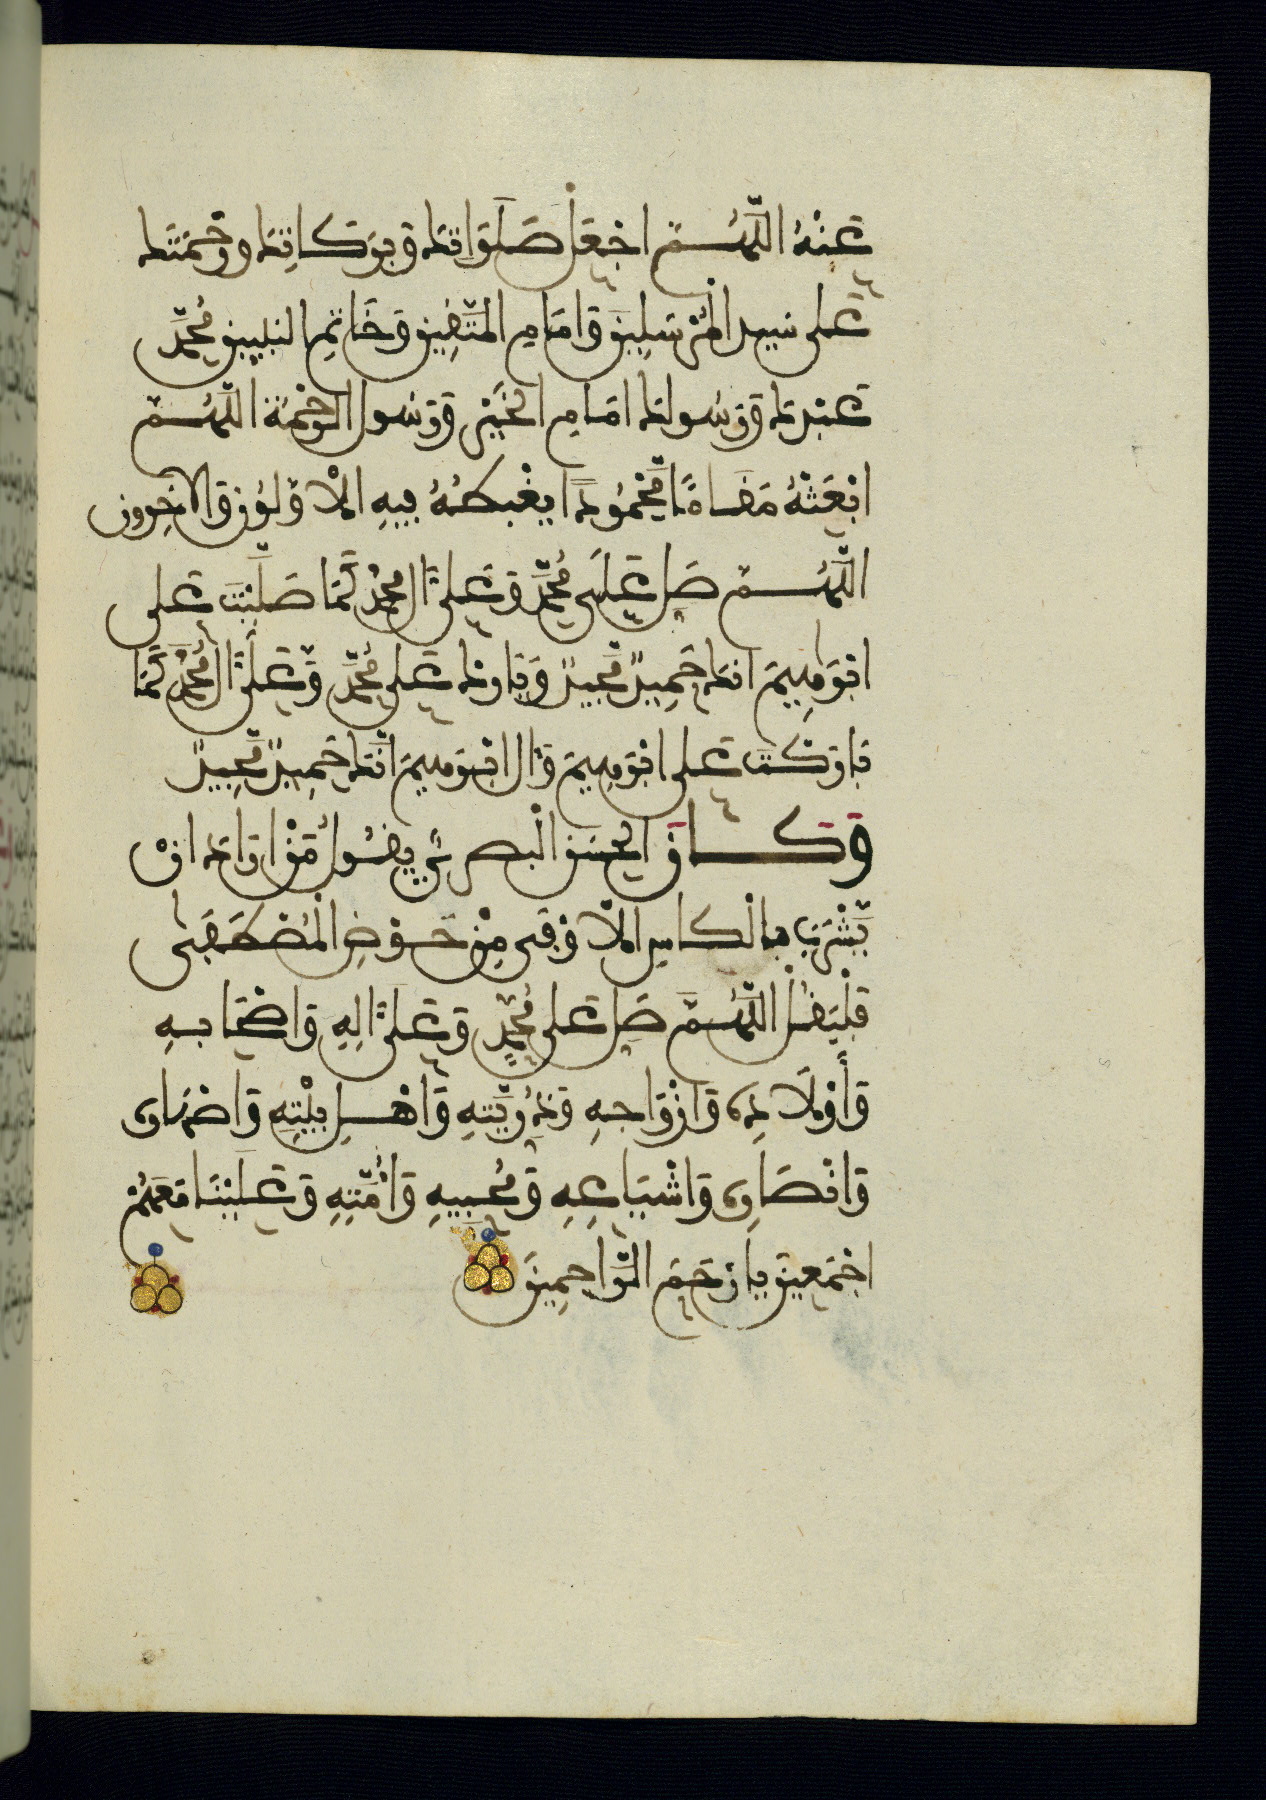 عَنْهُ اللَّهُمَّ اجْعَلْ صَلَوَاتِكَ وَبَرَكَاتِكَ وَرَحْمَتَكَ
عَلَى سَيِّدِ الْمُرْسَلِينَ وَإِمَامِ الْمُتَّقِينَ وَخَاتِمِ النَّبِيِّينَ مُحَمَّدٍ
عَبْدِكَ وَرَسُولِكَ إِمَامِ الْخَيْرِ وَرَسُولِ الرَّحْمَةِ اللَّهُمَّ
ابْعَثْهُ مَقَامًا مَحْمُودًا يَغْبِطُهُ فِيهِ الْأَوَّلُونَ وَالْآخِرُونَ
اللَّهُمَّ صَلِّ عَلَى مُحَمَّدٍ وَعَلَى آلِ مُحَمَّدٍ كَمَا صَلَّيْتَ عَلَى
إِبْرَاهِيمَ إِنَّكَ حَمِيدٌ مَجِيدٌ وَبَارِكْ عَلَى مُحَمَّدٍ وَعَلَى آلِ مُحَمَّدٍ كَمَا
بَارَكْتَ عَلَى إِبْرَاهِيمَ وَآلِ إِبْرَاهِيمَ إِنَّكَ حَمِيدٌ مَجِيدٌ
وَكَانَ الْحَسَنُ الْبَصْرِيُّ يَقُولُ مَنْ أَرَادَ أَنْ
يَشْرَبَ بِالْكَاسِ الْأَوْفَى مِنْ حَوْضِ الْمُصْطَفَى
فَلْيَقُلْ اللَّهُمَّ صَلِّ عَلَى مُحَمَّدٍ وَعَلَى آلِهِ وَأَصْحَابِهِ
وَأَوْلَادِهِ وَأَزْوَاجِهِ وَذُرِّيَّتِهِ وَأَهْلِ بَيْتِهِ وَأَصْهَارِهِ
وَأَنْصَارِهِ وَأَشْيَاعِهِ وَمُحِبِّيهِ وَأُمَّتِهِ وَعَلَيْنَا مَعَهُمْ
أَجْمَعِينَ يَا أَرْحَمَ الرَّاحِمِينَ